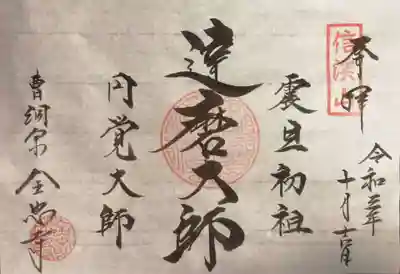 奉拝
令和三年
十月十六日
信濃山
震旦初祖
達磨大師
円覚大師
曹洞宗 全忠寺